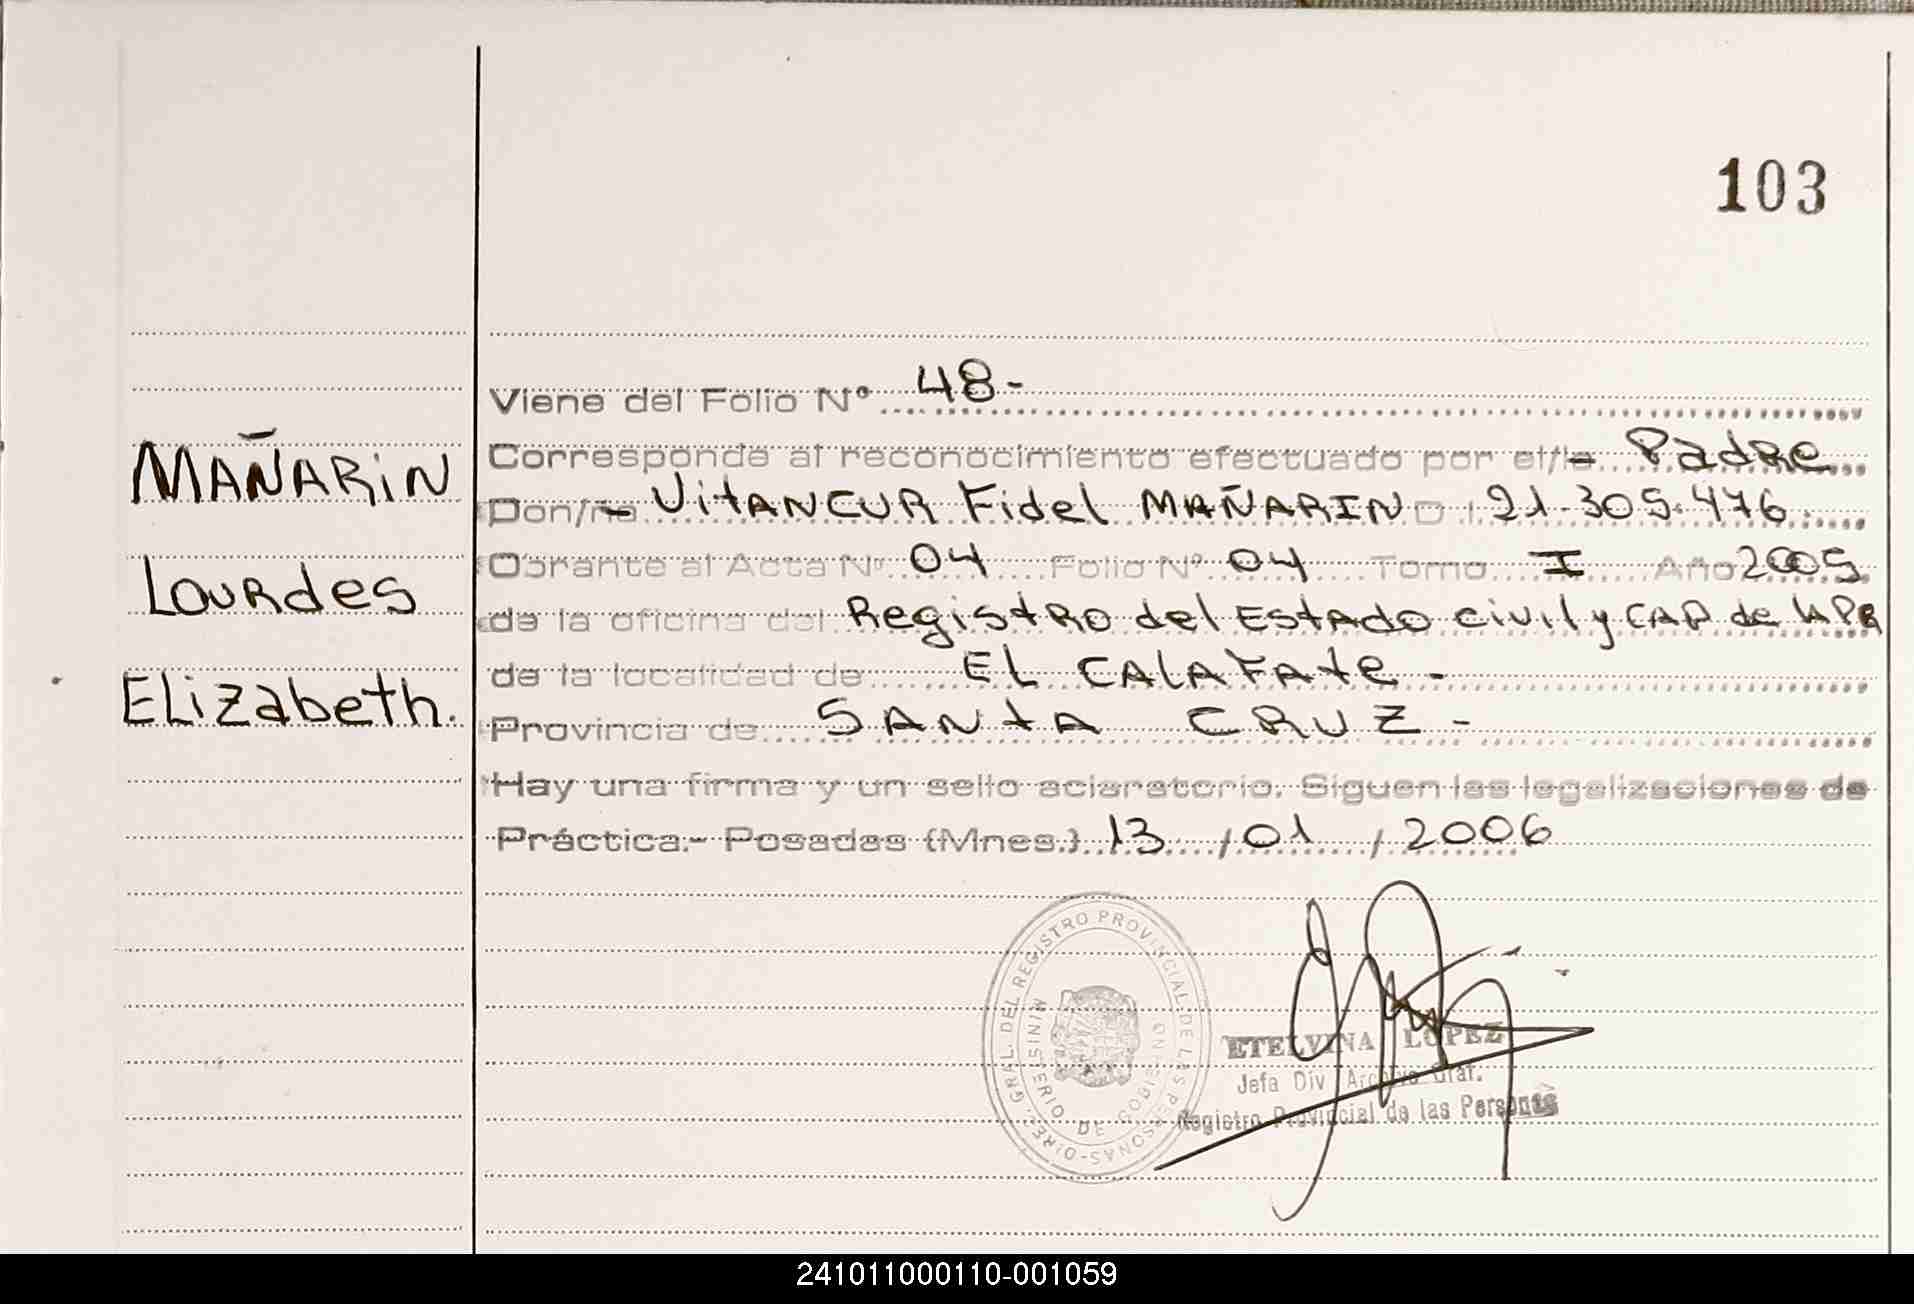 103
Viene del Folio Nº 48-
MAÑARIN
Corresponde al reconocimiento efectuado por el/la Padre
Don/ña VitANCUR Fidel MAÑARIN D 21.305.476
Obrante al Acta Nº 04 Folio Nº 04 Tomo I Año 2005
Lourdes
de la oficina del Registro del Estado civil y CAP de lAS PR
de la localidad de EL CALAFAte -
Elizabeth.
Provincia de SANtA CRUZ -
Hay una firma y un sello aclaratorio. Siguen las legalizaciones de
Práctica.- Posadas (Mnes.) 13 / 01 / 2006
DIREC. GRAL. DEL REGISTRO PROVINCIAL DE LAS PERSONAS-
MINISTERIO DE
ETELVINA LOPEZ
Jefa Div Archivo Gral.
Registro Provincial de las Personas
241011000110-001059